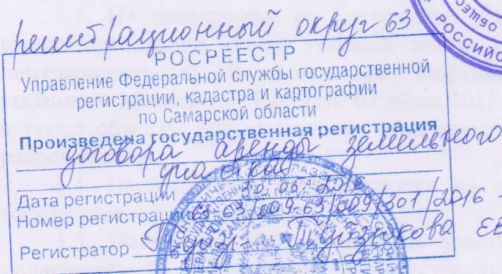 регистрационный округ 63
РОСРЕЕСТР
Управление Федеральной службы государственной
регистрации, кадастра и картографии
по Самарской области
Произведена государственная регистрация
договора аренды земельного
участка
Дата регистрации
Номер регистрации 63-63/009-63/009/301/2016-
Регистратор
РОССИЙС